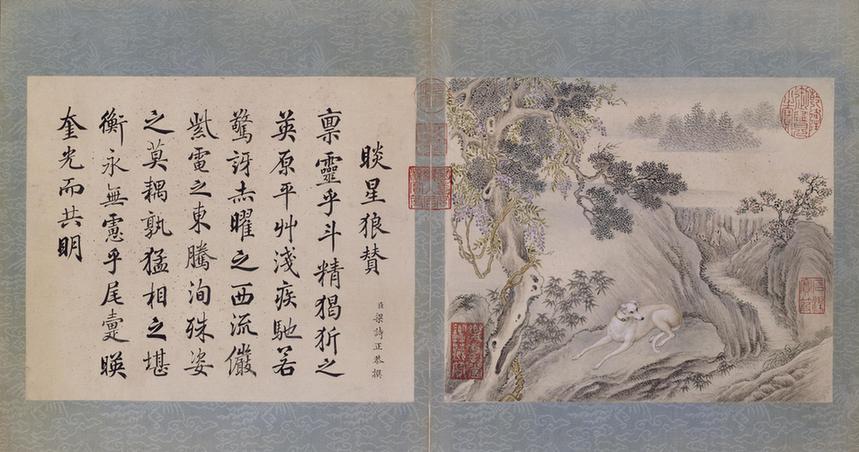 睒星狼贊
臣梁詩正恭撰
禀靈乎斗精猲之
英原平艸淺疾馳若
驚訝赤曜之西流儼
紫電之東騰洵殊姿
之莫耦孰猛相之堪
衡永無慮乎尾疐暎
奎光而共明